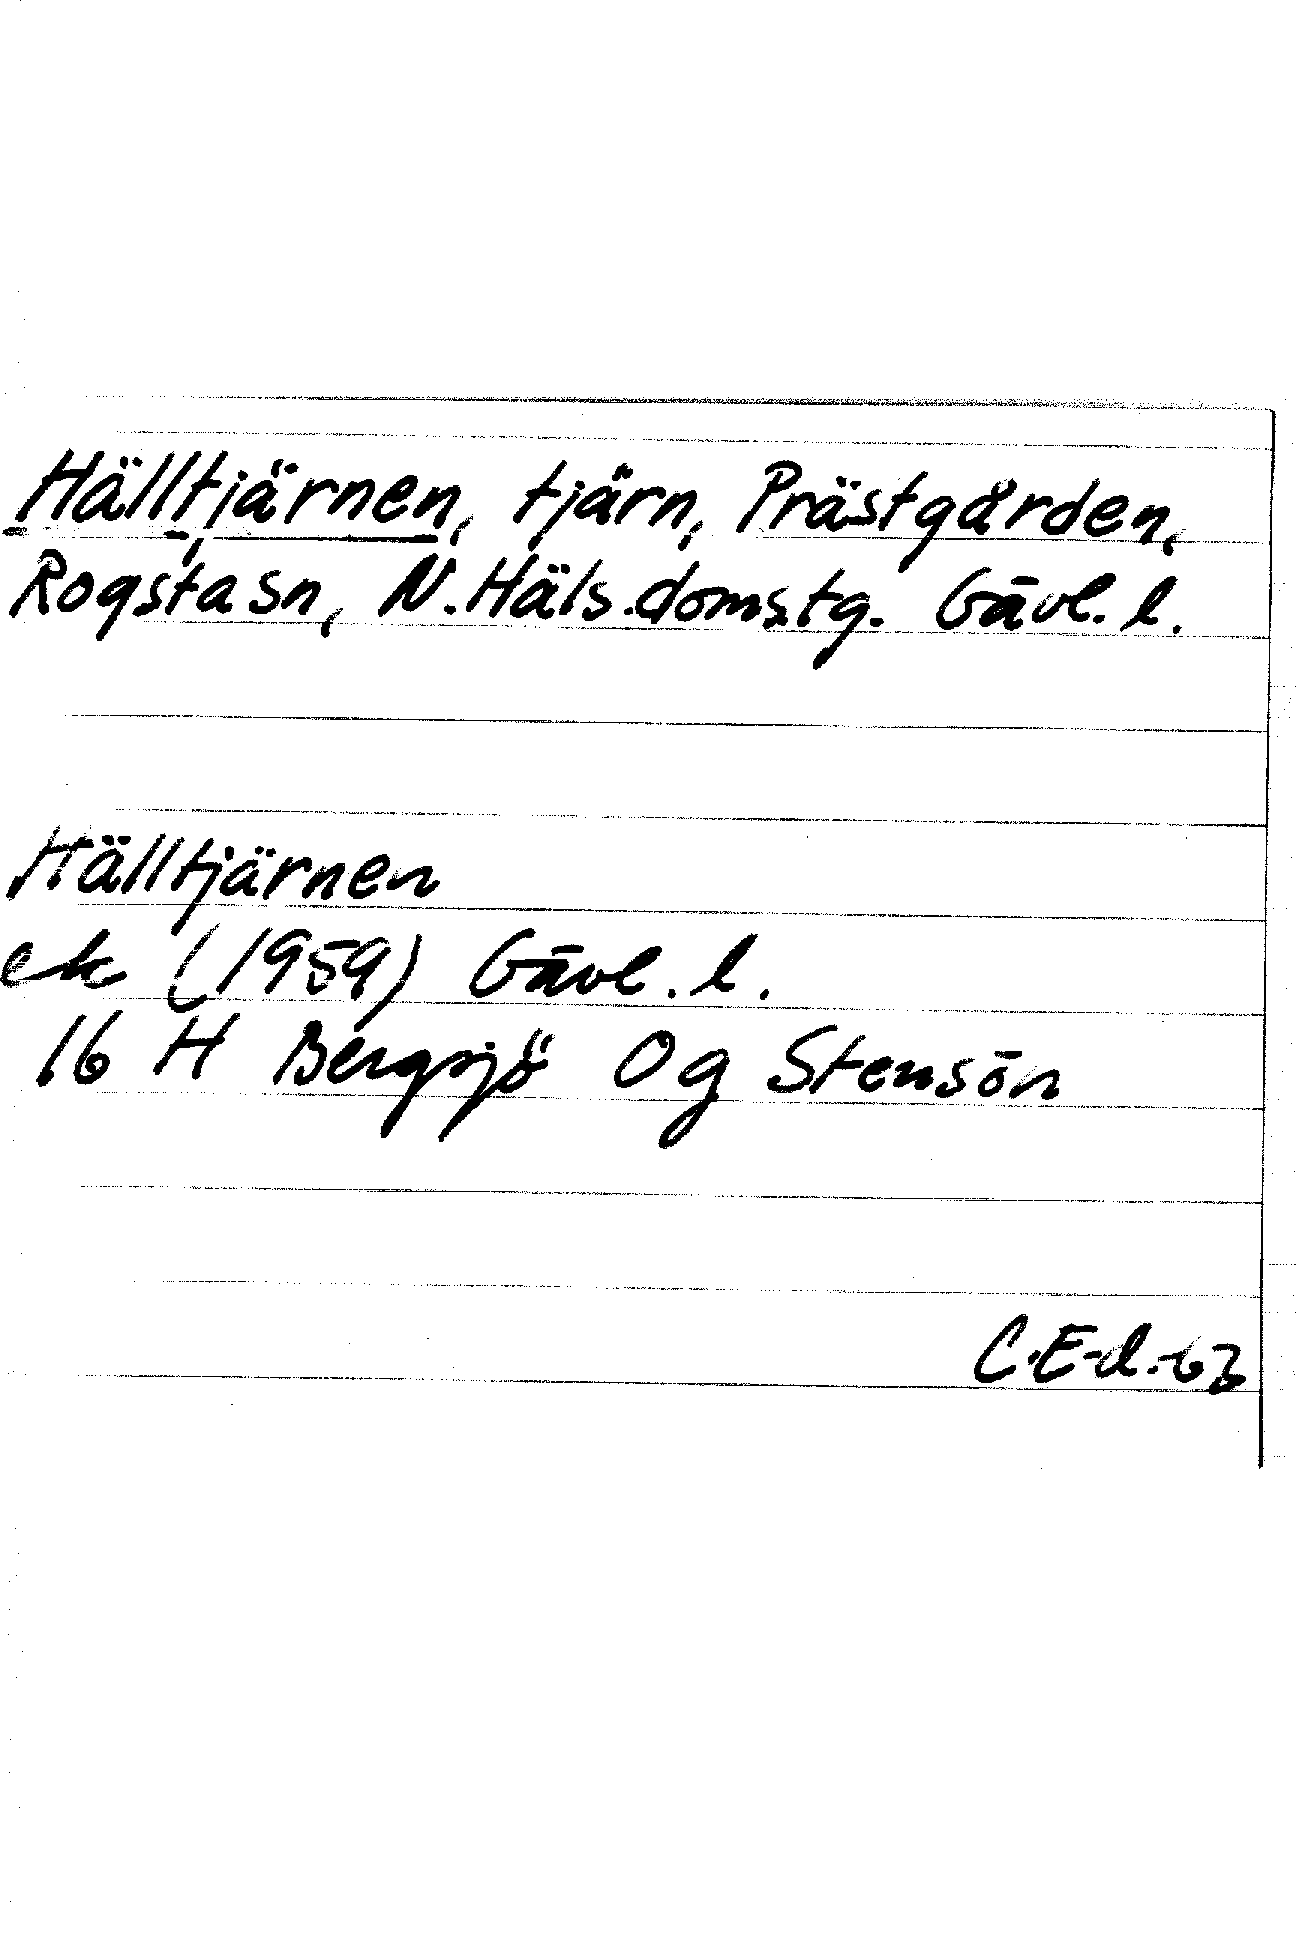 Hälltjärnen, tjärn, Prästgården,
Rogsta sn, N. Häls. domstg. Gävl. l.
Hälltjärnen
ek (1959) Gävl. l.
16 H Bergsjö 0g Stensön
C.E-d.-63